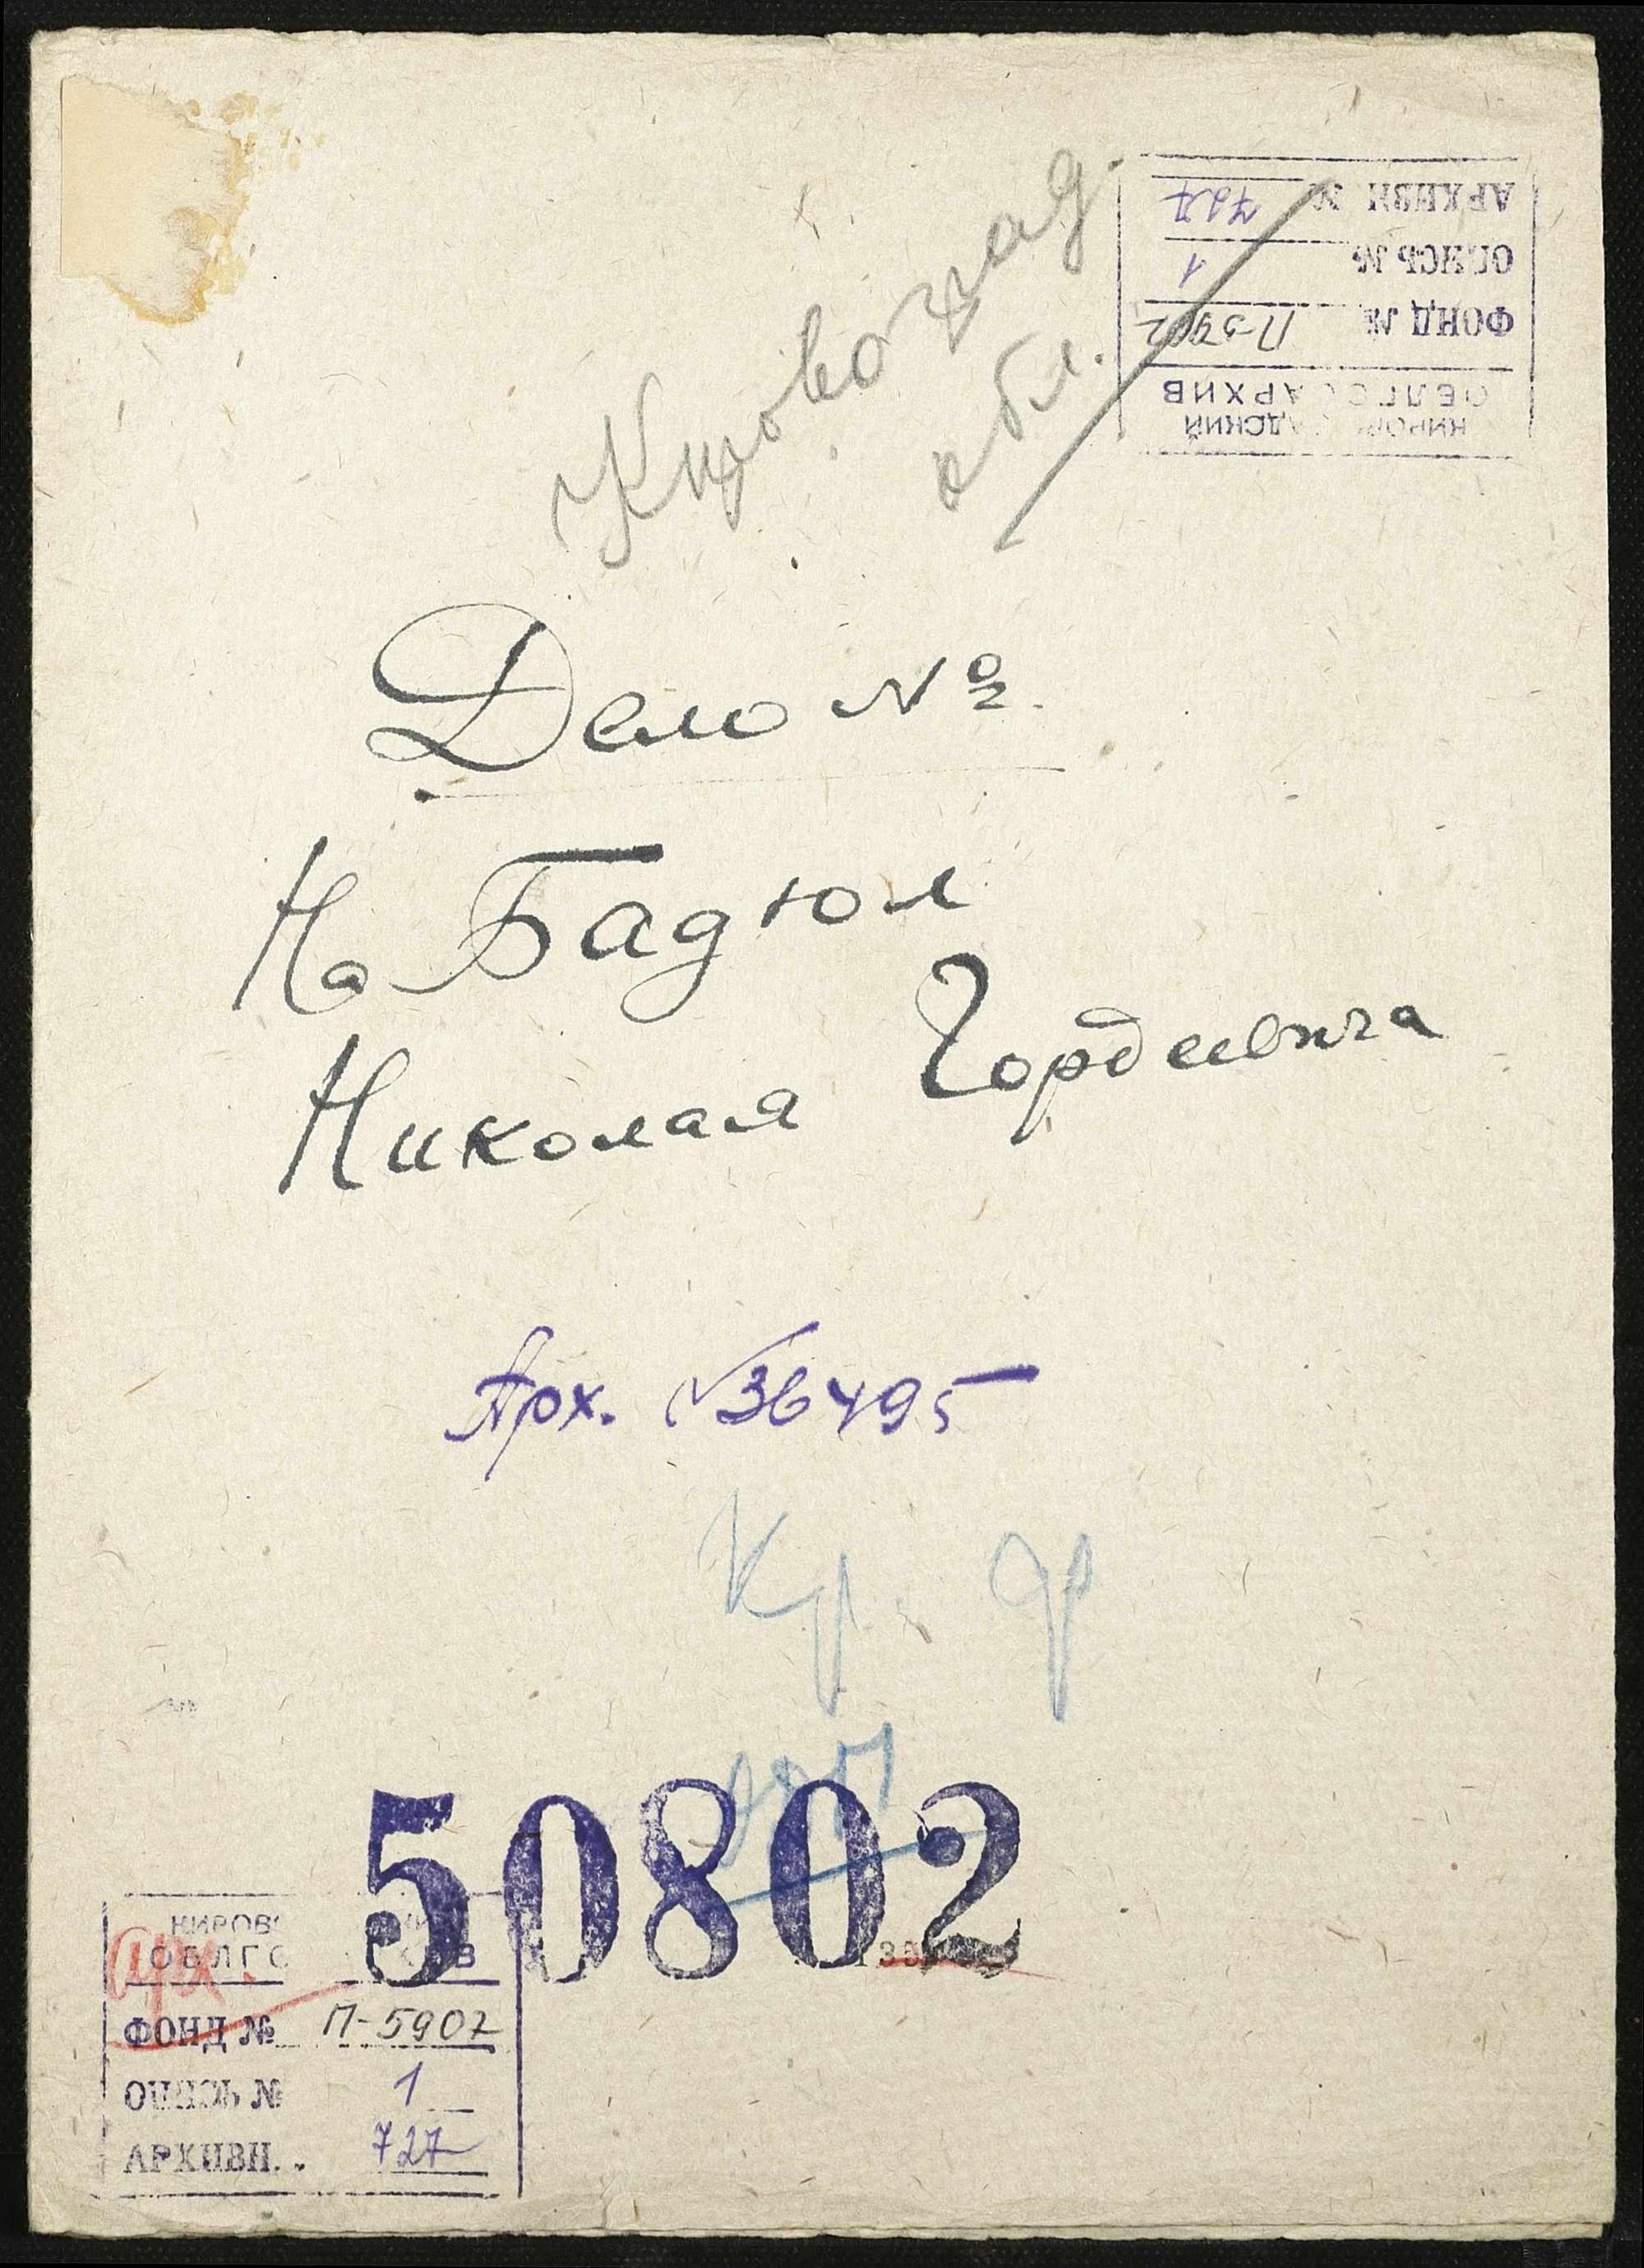 Кировоград.
обл.
АРХИВН № 727
ОПИСЬ № 1
ФОНД № П-5907
Дело №
На Бадюл
Николая Гордеевича
Арх. №36495
Кр. др
50802
Арх.
ФОНД № П-5907
ОПИСЬ № 1
АРХИВН. 727